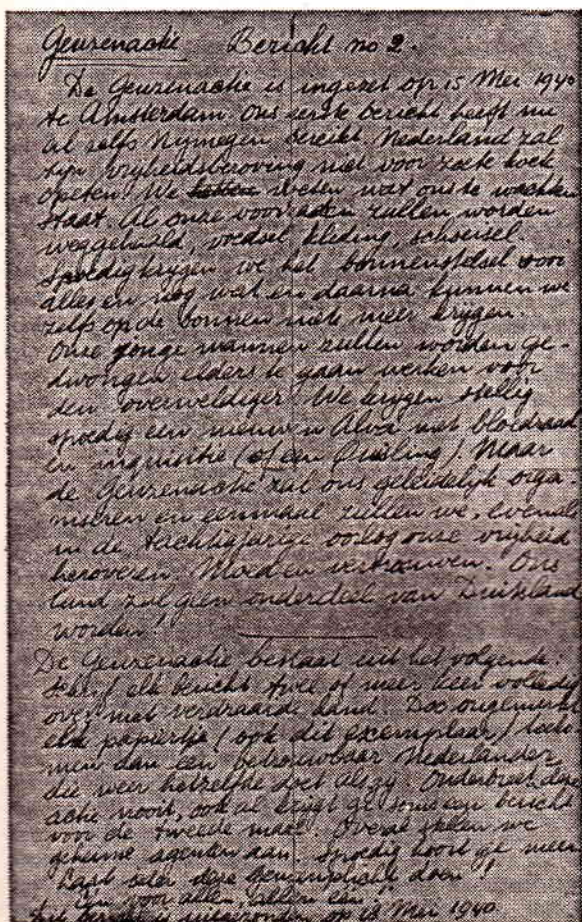 Geuzenactie Bericht no 2.
De Geuzenactie is ingezet op 15 Mei 1940
te Amsterdam. Ons eerste bericht heeft nu
al zelfs Nymegen bereikt. Nederland zal
zijn vrijheidsberoving niet voor zoete koek
opeten. We weten wat ons te wachten
staat. Al onze voorraden zullen worden
weggehaald, voedsel, kleding, schoeisel.
Spoedig krygen we het bonnenstelsel voor
alles en nog wat en daarna kunnen we
zelfs op de bonnen niets meer krygen.
Onze jonge mannen zullen worden ge-
dwongen elders te gaan werken voor
den overweldiger. We krygen stellig
spoedig een nieuwen Alva met bloedraad
en inquisitie (of een Quisling). Maar
de Geuzenactie zal ons geleidelijk orga-
niseren en eenmaal zullen we, evenals
in de tachtigjarige oorlog onze vrijheid
heroveren. Moed en vertrouwen. Ons
land zal geen onderdeel van Duitsland
worden!
De Geuzenactie bestaat uit het volgende.
Schrijf elk bericht twee of meer keer volledig
over met verdraaide hand. Doe ongemerkt
elk papiertje (ook dit exemplaar) toeko-
men aan een betrouwbaar Nederlander
die weer hetzelfde doet als gy. Onderbreek deze
actie nooit, ook al krijgt ge soms een bericht
voor de tweede maal. Overal stellen we
geheime agenten aan. Spoedig hoort ge meer
Laat ieder deze Geuzenactie doen!
Een voor allen, allen een!
Dit bericht is uitgezonden op 18 Mei 1940.